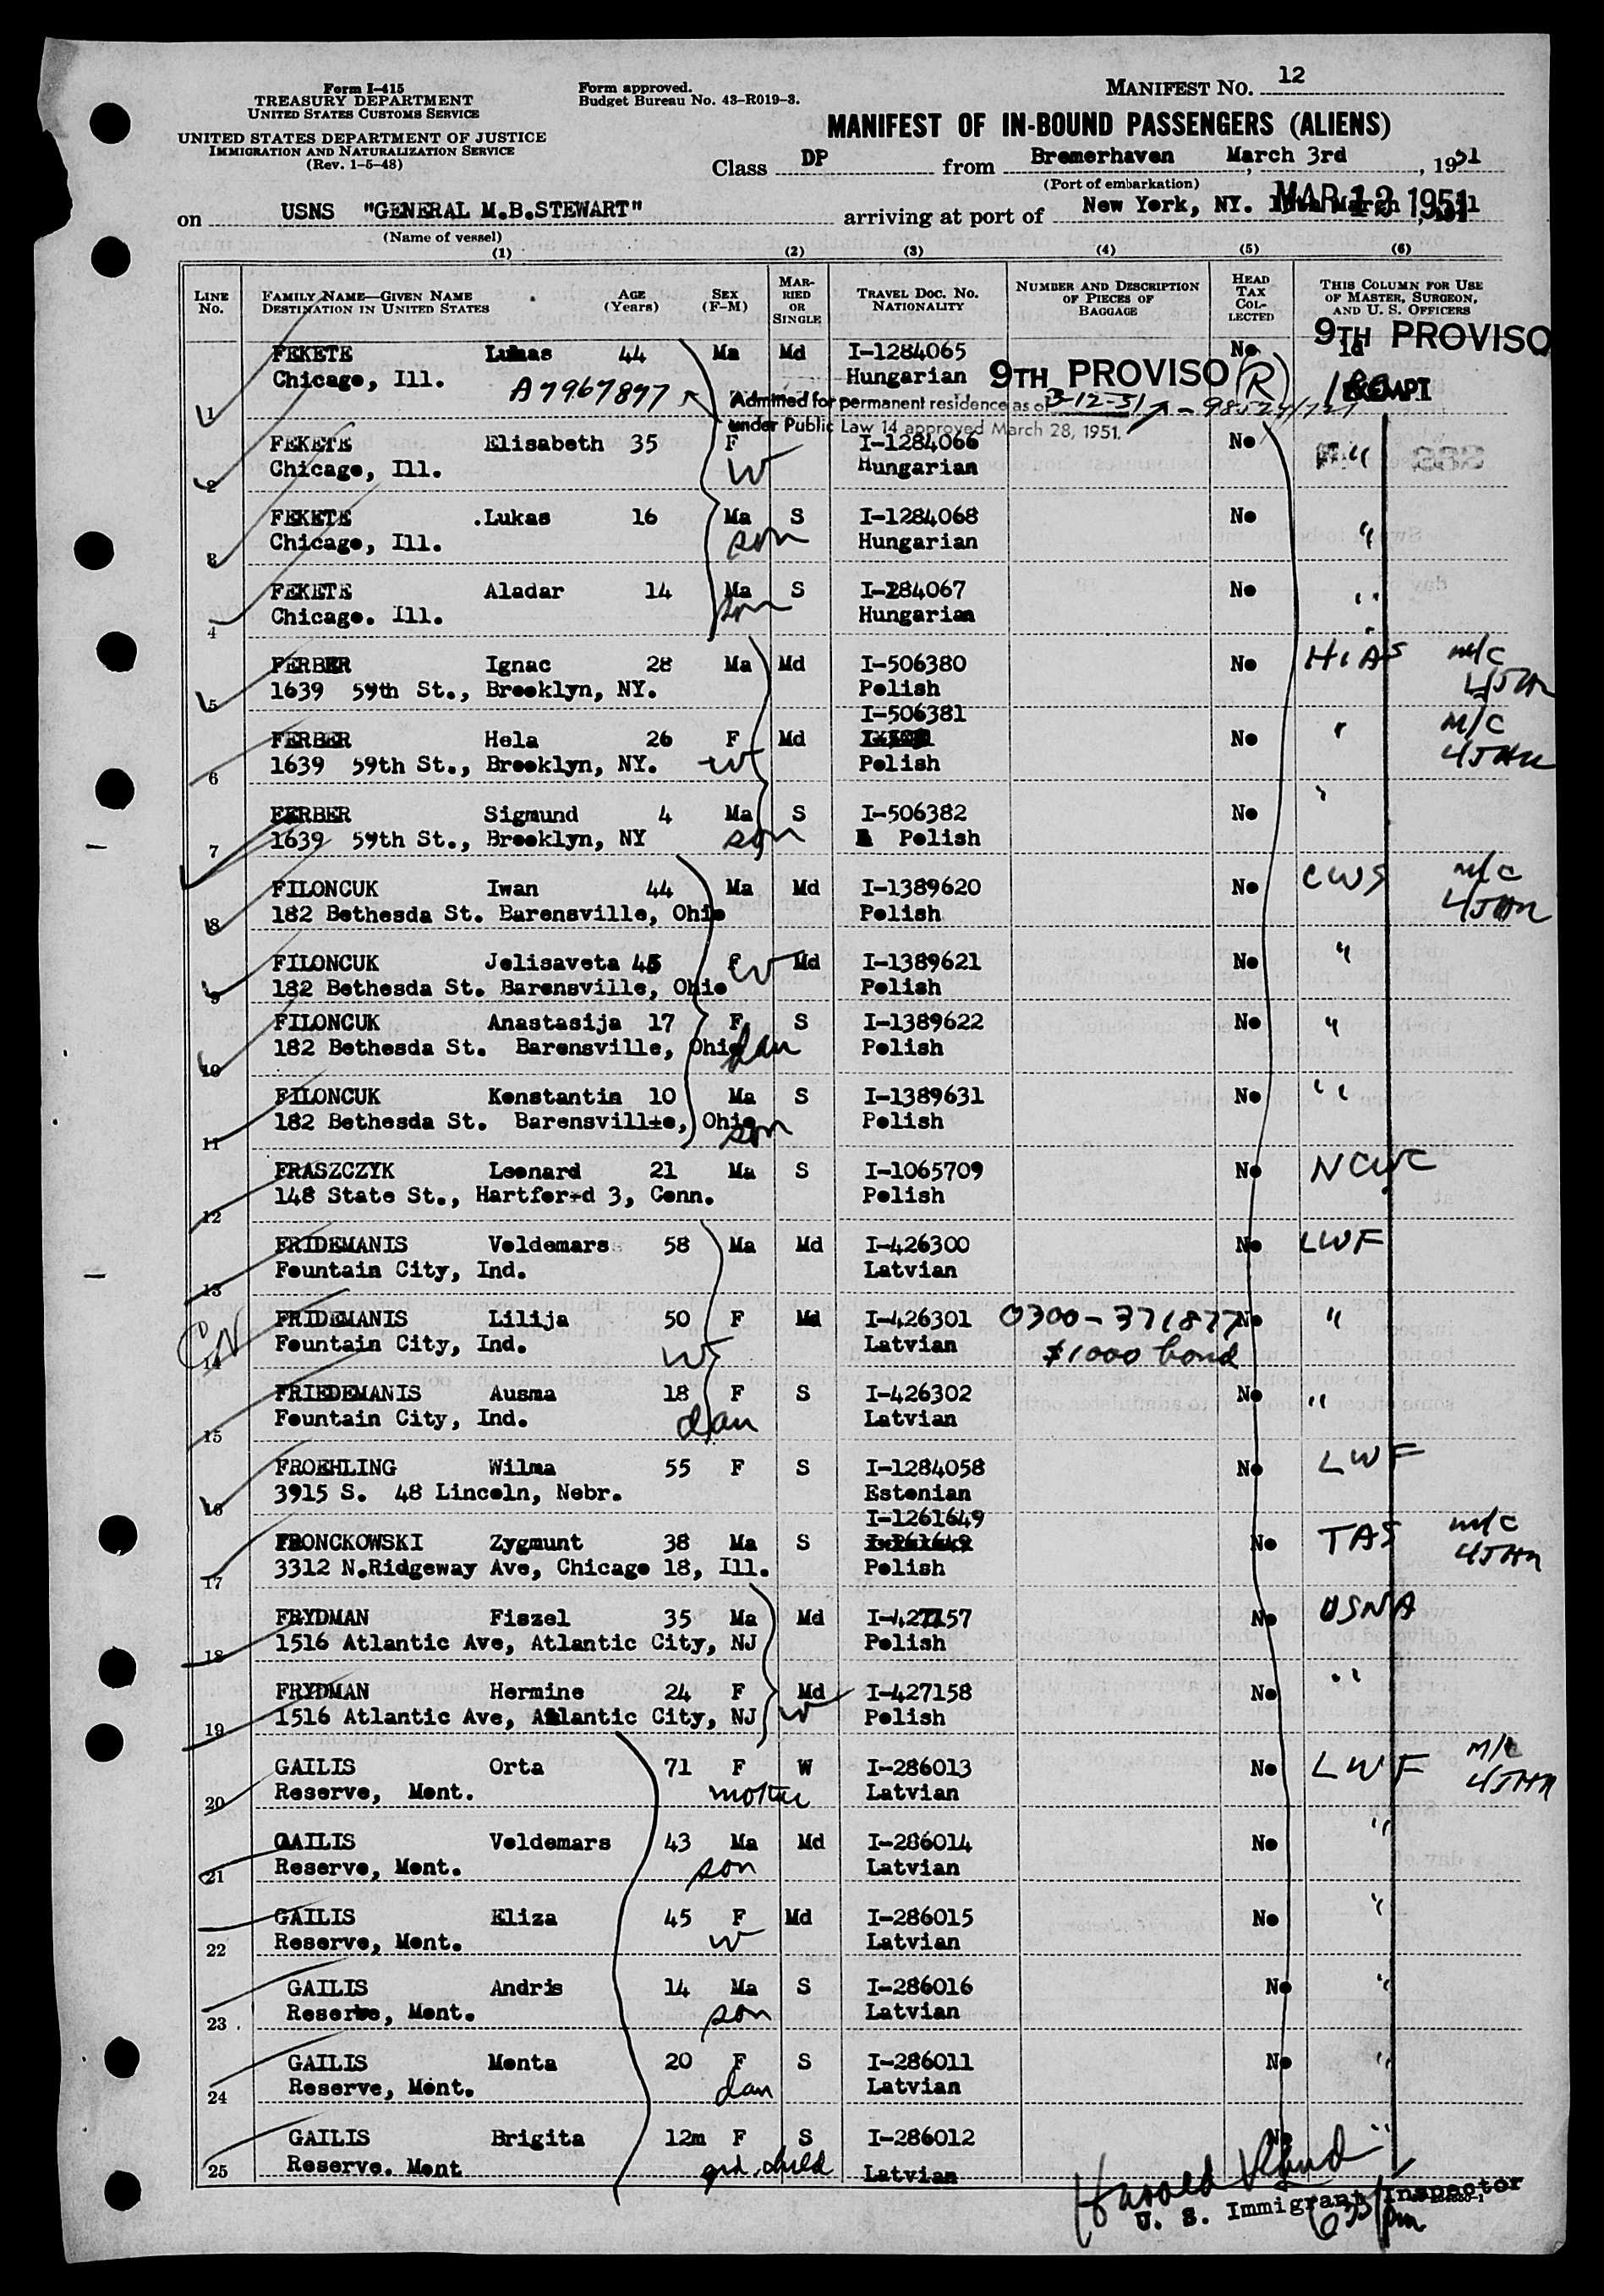 Form I-415
TREASURY DEPARTMENT
UNITED STATES CUSTOMS SERVICE
UNITED STATES DEPARTMENT OF JUSTICE
IMMIGRATION AND NATURALIZATION SERVICE
(Rev. 1-5-48)
Form approved.
Budget Bureau No. 43-R019-3.
MANIFEST NO. 12
MANIFEST OF IN-BOUND PASSENGERS (ALIENS)
Class DP from Bremerhaven March 3rd, 1951
(Port of embarkation)
on USNS "GENERAL M.B.STEWART" arriving at port of New York, NY. MAR 12 1951
(Name of vessel)
(1) (2) (3) (4) (5) (6)
LINE No. FAMILY NAME—GIVEN NAME DESTINATION IN UNITED STATES AGE (Years) SEX (F-M) MARRIED OR SINGLE TRAVEL DOC. NO. NATIONALITY NUMBER AND DESCRIPTION OF PIECES OF BAGGAGE HEAD TAX COLLECTED THIS COLUMN FOR USE OF MASTER, SURGEON, AND U. S. OFFICERS
9TH PROVISO
1 FEKETE Lukas 44 Ma Md I-1284065 No
Chicago, Ill. A7967897 Hungarian 9TH PROVISO (R) EXEMPT
Admitted for permanent residence as of 3-12-51
under Public Law 14 approved March 28, 1951.
2 FEKETE Elisabeth 35 F I-1284066 No "
Chicago, Ill. W Hungarian
3 FEKETE .Lukas 16 Ma S I-1284068 No "
Chicago, Ill. son Hungarian
4 FEKETE Aladar 14 Ma S I-284067 No "
Chicago. Ill. son Hungarian
5 FERBER Ignac 28 Ma Md I-506380 No HIAS m/c
1639 59th St., Brooklyn, NY. Polish
I-506381
6 FERBER Hela 26 F Md No " M/C
1639 59th St., Brooklyn, NY. W Polish
7 FERBER Sigmund 4 Ma S I-506382 No "
1639 59th St., Brooklyn, NY son Polish
8 FILONCUK Iwan 44 Ma Md I-1389620 No CWS m/c
182 Bethesda St. Barensville, Ohio Polish
9 FILONCUK Jelisaveta 45 F W Md I-1389621 No "
182 Bethesda St. Barensville, Ohio Polish
10 FILONCUK Anastasija 17 F S I-1389622 No "
182 Bethesda St. Barensville, Ohio dau Polish
11 FILONCUK Konstantin 10 Ma S I-1389631 No "
182 Bethesda St. Barensville, Ohio son Polish
12 FRASZCZYK Leonard 21 Ma S I-1065709 No NCWC
148 State St., Hartford 3, Conn. Polish
13 FRIDEMANIS Voldemars 58 Ma Md I-426300 No LWF
Fountain City, Ind. Latvian
14 FRIDEMANIS Lilija 50 F Md I-426301 0300-371877 No "
Fountain City, Ind. W Latvian $1000 bond
15 FRIEDEMANIS Ausma 18 F S I-426302 No "
Fountain City, Ind. dau Latvian
16 FROEHLING Wilma 55 F S I-1284058 No LWF
3915 S. 48 Lincoln, Nebr. Estonian
I-1261649
17 FRONCKOWSKI Zygmunt 38 Ma S No TAS m/c
3312 N.Ridgeway Ave, Chicago 18, Ill. Polish
18 FRYDMAN Fiszel 35 Ma Md I-427157 No USNA
1516 Atlantic Ave, Atlantic City, NJ Polish
19 FRYDMAN Hermine 24 F Md I-427158 No "
1516 Atlantic Ave, Atlantic City, NJ W Polish
20 GAILIS Orta 71 F W I-286013 No LWF M/C
Reserve, Mont. mother Latvian
21 GAILIS Voldemars 43 Ma Md I-286014 No "
Reserve, Mont. son Latvian
22 GAILIS Eliza 45 F Md I-286015 No "
Reserve, Mont. W Latvian
23 GAILIS Andris 14 Ma S I-286016 No "
Reserve, Mont. son Latvian
24 GAILIS Monta 20 F S I-286011 No "
Reserve, Mont. dau Latvian
25 GAILIS Brigita 12m F S I-286012 No "
Reserve. Mont grd. child Latvian
Harold
U. S. Immigrant Inspector